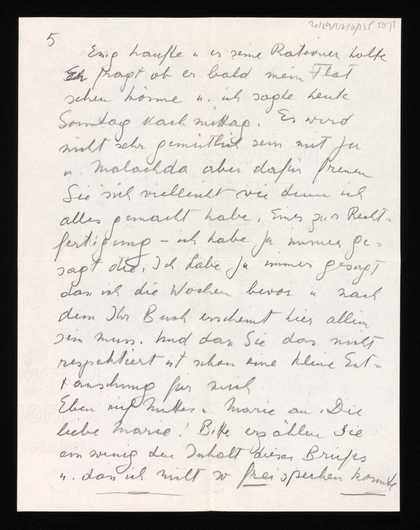 5
Ernig kaufte u er seine
Er fragt ob er bald mein Flat
sehen könne u. ich sagte heute
Sonntag Nachmittag. Es wird
nicht sehr gemütlich sein mit Ju
u. Mathilda aber dafür freuen
Sie sich vielleicht wie denn ich
alles gemacht habe. Eines zur Recht-
fertigung – ich habe Ju immer ge-
sagt die. Ich habe Ju immer gesagt
dass ich die Wochen bevor u nach
dem Ihr Buch erscheint hier allein
sein muss. Und dass Sie das nicht
respektiert ist schon eine kleine Ent-
täuschung für mich
Eben rief Mutter u. Marie an. Die
liebe Marie! Bitte erzählen Sie
ein wenig den Inhalt dieses Briefes
u. dass ich nicht so frei sprechen konnte